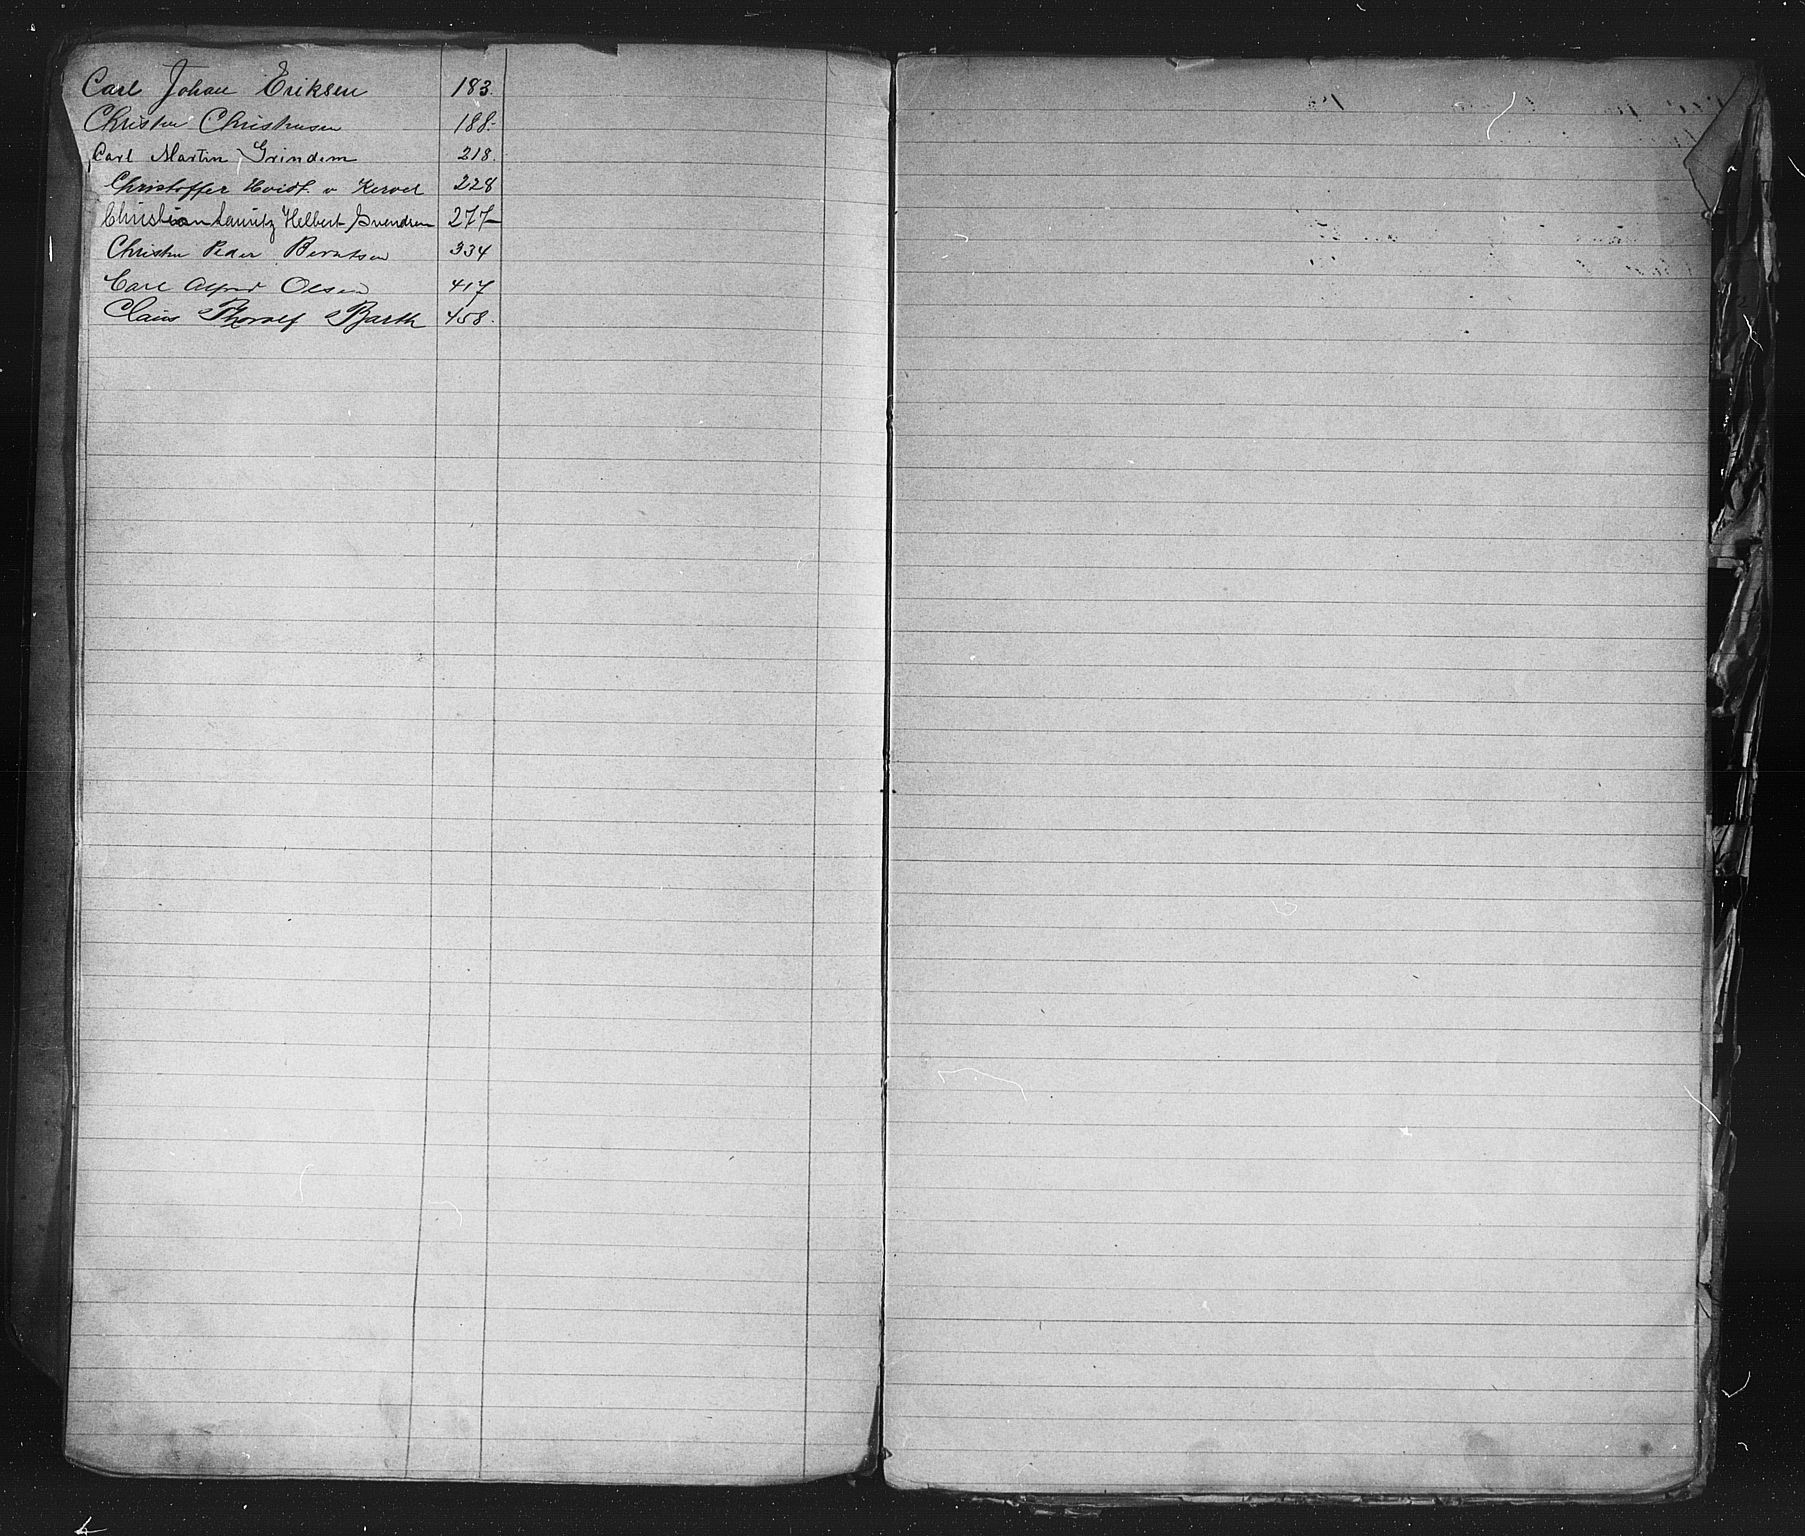 Carl Johan Eriksen 183.
Christen Christensen 188.
Carl Martin Grindem 218.
Christoffer Hvidt v 228
Christian Lauritz Helbert Svendsen 277
Christen Peder Berntsen 334
Carl Alfred Olsen 417
Claus Thoralf Barth 458.